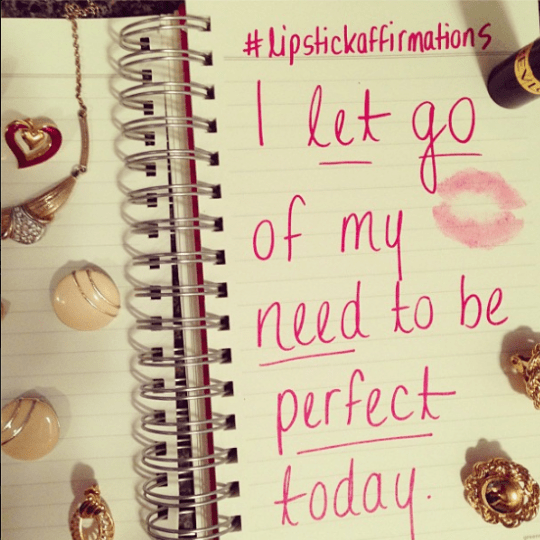 #lipstickaffirmations
I let go
of my
need to be
perfect
today.